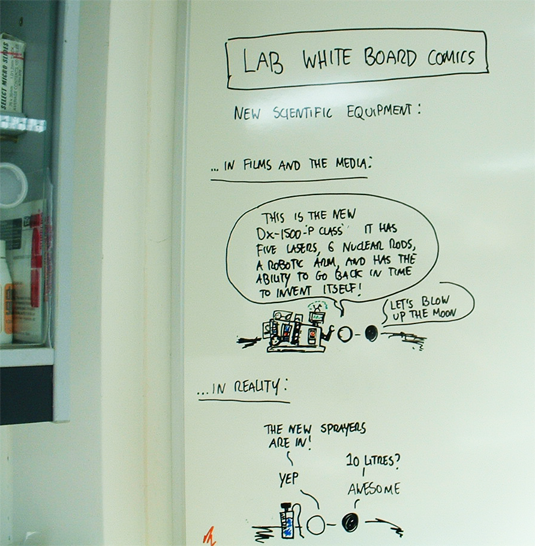 LAB WHITE BOARD COMICS
NEW SCIENTIFIC EQUIPMENT:
...IN FILMS AND THE MEDIA:
THIS IS THE NEW
DX-1500-'P CLASS' IT HAS
FIVE LASERS, 6 NUCLEAR RODS,
A ROBOTIC ARM, AND HAS THE
ABILITY TO GO BACK IN TIME
TO INVENT ITSELF!
LET'S BLOW
UP THE MOON
...IN REALITY:
THE NEW SPRAYERS
ARE IN!
YEP
10 LITRES?
AWESOME
SELECT MICRO SLIDES